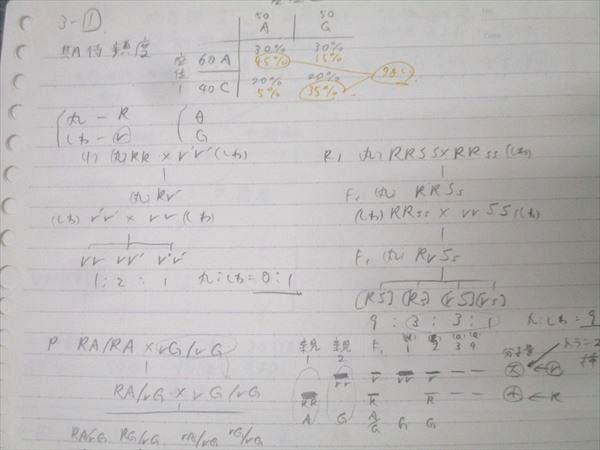 3-①
50 50
A G
30% 30%
60 A 45% 15%
20% 20%
40 C 5% 35%
丸 - R A
しわ - r G
(1) (丸) RR × r'r' (しわ)
(丸) Rr'
(しわ) r'r' × rr (しわ)
rr rr' r'r'
1 : 2 : 1 丸:しわ = 0 : 1
(丸) RRSS × RRss (しわ)
F₁ (丸) RRSs
(しわ) RRss × rrSS (しわ)
F₁ (丸) RrSs
[RS] [Rs] [rS] [rs]
9 : 3 : 3 : 1
丸:しわ = 9
P RA/RA × rG/rG
RA/rG × rG/rG
RA/rG RG/rG rA/rG rG/rG
親 親 F₁ 1 2 3 4
1 2
分子量
rr r rr r
大 ← r
RR R R
小 ← R
A G A/G G G